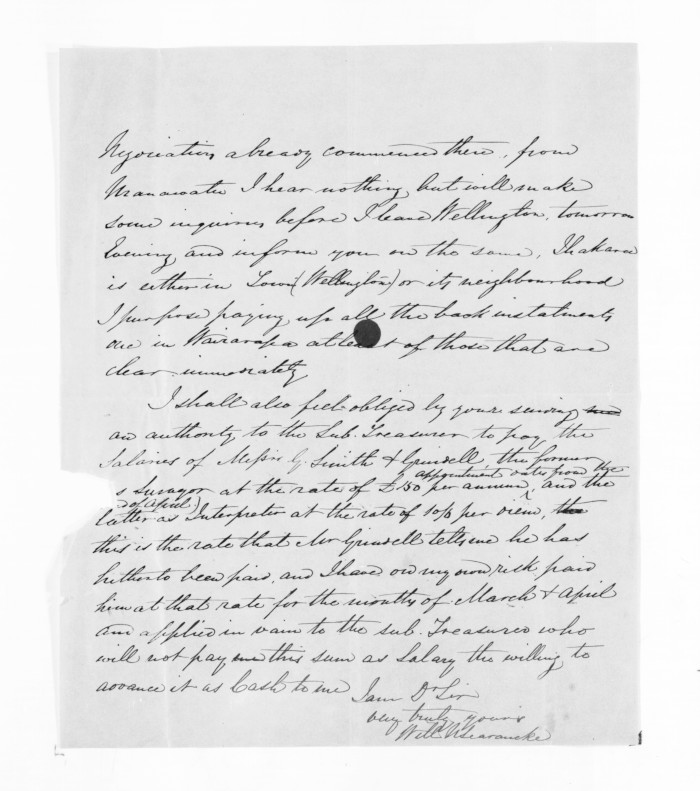 Negociations already commenced there, from
Manawatu I hear nothing but will make
some inquiries before I leave Wellington, tomorrow
Evening and inform you on the same, Ihakara
is either in Town (Wellington) or its neighbourhood
I purpose paying up all the back instalments
due in Wairarapa at least of those that are
clear immediately
I shall also feel obliged by your sending
an authority to the Sub. Treasurer to pay the
Salaries of Messrs G. Smith & Grindell, the former
appointment dates from the
s Surveyor at the rate of £150 per annum, and the
of April)
latter as Interpreter at the rate of 10/6 per diem, the
this is the rate that Mr Grindell tells me he has
hitherto been paid, and I have on my own risk paid
him at that rate for the months of March & April
and applied in vain to the sub. Treasurer who
will not pay me this sum as Salary tho willing to
advance it as Cash to me
I am Dr Sir
very truly yours
Willm N Searancke